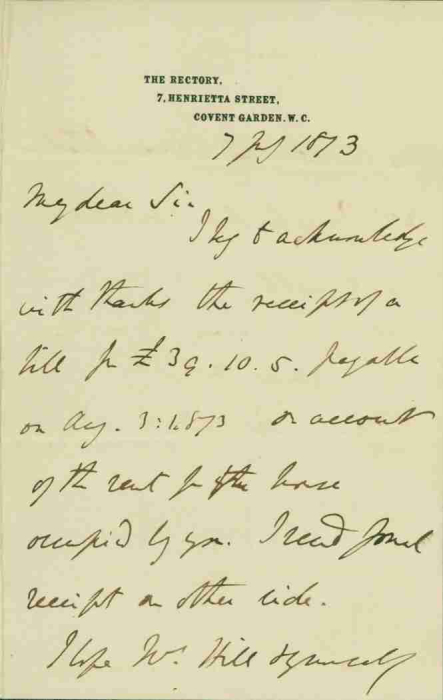 THE RECTORY,
7, HENRIETTA STREET,
COVENT GARDEN. W.C.
7 July 1873
My dear Sir
I beg to acknowledge
with thanks the receipt of a
bill for £39.10.5. payable
on Aug. 3: 1873 on account
of the rent for the house
occupied by you. I send formal
receipt on other side.
I hope Mrs Hill & yourself